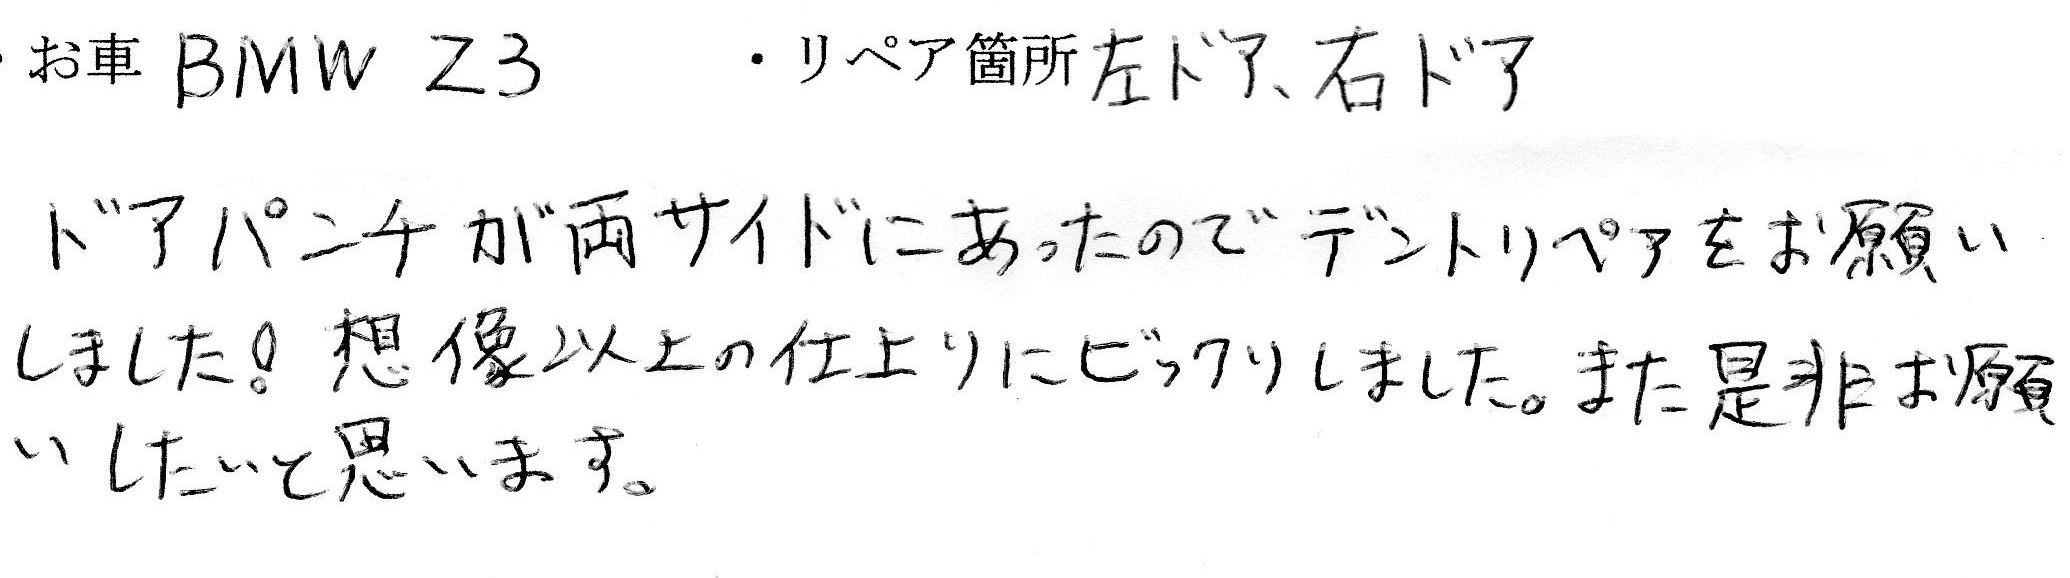 ・お車 BMW Z3 ・リペア箇所 左ドア、右ドア
ドアパンチが両サイドにあったのでデントリペアをお願い
しました！想像以上の仕上りにビックリしました。また是非お願
いしたいと思います。